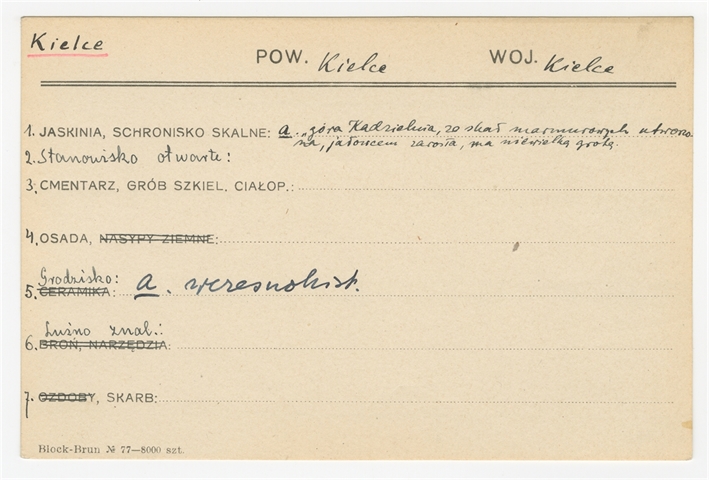 Kielce
POW. Kielce WOJ. Kielce
1. JASKINIA, SCHRONISKO SKALNE: a. „góra Kadzielnia, ze skał marmurowych utworzo-
na, jałowcem zarosła, ma niewielką grotę.
2. Stanowisko otwarte:
3. CMENTARZ, GRÓB SZKIEL. CIAŁOP.:
4. OSADA, NASYPY ZIEMNE:
Grodzisko: a. wczesnohist.
5. CERAMIKA:
Luźno znal.:
6. BROŃ, NARZĘDZIA:
7. OZDOBY, SKARB:
Block-Brun № 77—8000 szt.